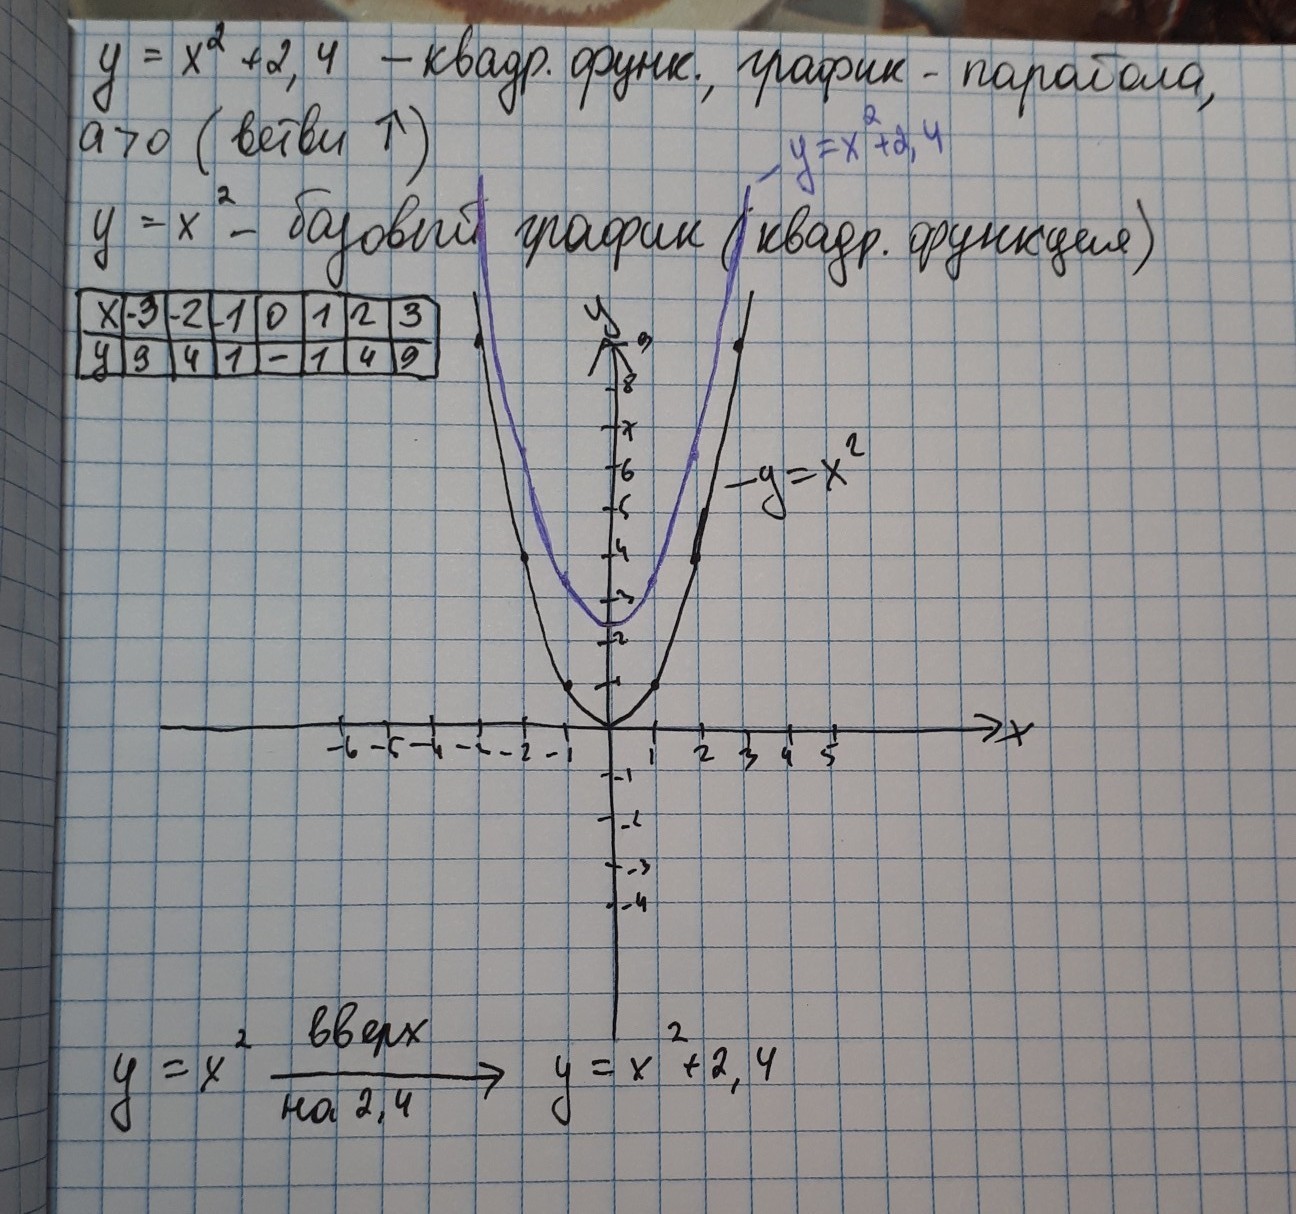 y = x² + 2,4 – квадр. функ., график - парабола,
a > 0 (ветви ↑)
y = x² + 2,4
y = x² – базовый график (квадр. функция)
x -3 -2 -1 0 1 2 3
y 9 4 1 – 1 4 9
y
9
8
7
6
5
4
3
2
1
– y = x²
-6 -5 -4 -2 -1 1 2 3 4 5 x
-1
-2
-3
-4
y = x² вверх на 2,4 → y = x² + 2,4